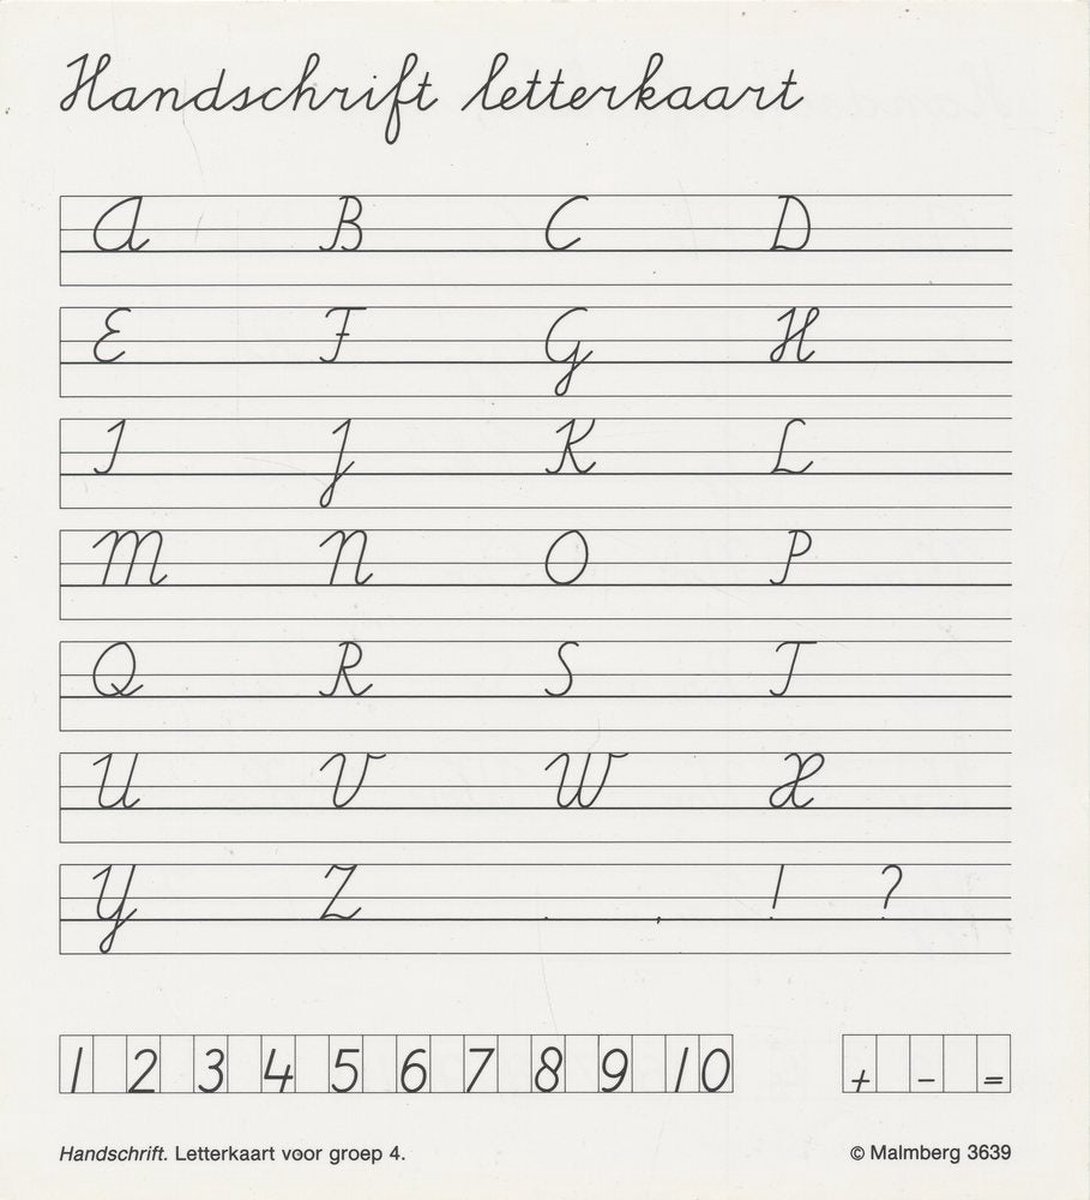 Handschrift letterkaart
A B C D
E F G H
I J K L
M N O P
Q R S T
U V W X
Y Z . , ! ?
1 2 3 4 5 6 7 8 9 10 + - =
Handschrift. Letterkaart voor groep 4. © Malmberg 3639